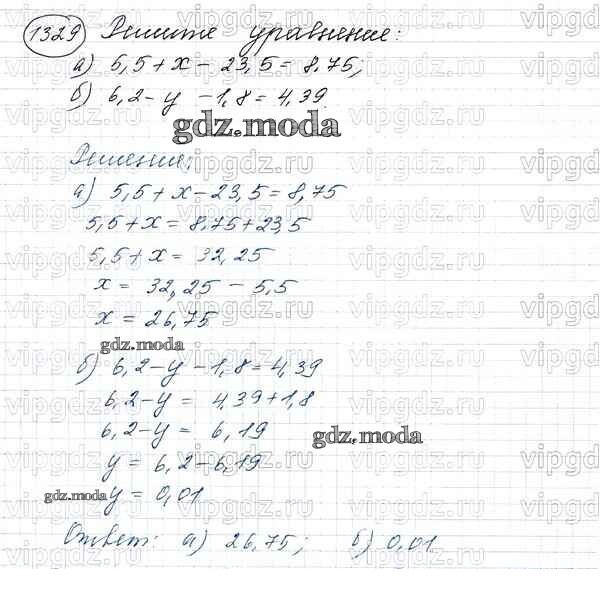 1329 Решите уравнение:
а) 5,5 + x - 23,5 = 8,75;
б) 6,2 - y - 1,8 = 4,39.
gdz.moda
Решение:
а) 5,5 + x - 23,5 = 8,75
5,5 + x = 8,75 + 23,5
5,5 + x = 32,25
x = 32,25 - 5,5
x = 26,75
gdz.moda
б) 6,2 - y - 1,8 = 4,39
6,2 - y = 4,39 + 1,8
6,2 - y = 6,19
gdz.moda
y = 6,2 - 6,19
gdz.moda y = 0,01
Ответ: а) 26,75; б) 0,01